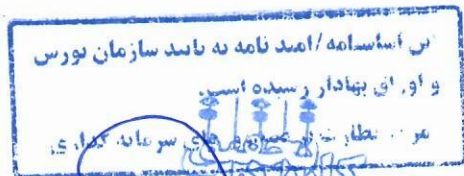 این اساسنامه/امید نامه به تایید سازمان بورس
و اوراق بهادار رسیده است.
نظارت بر صندوق های سرمایه گذاری